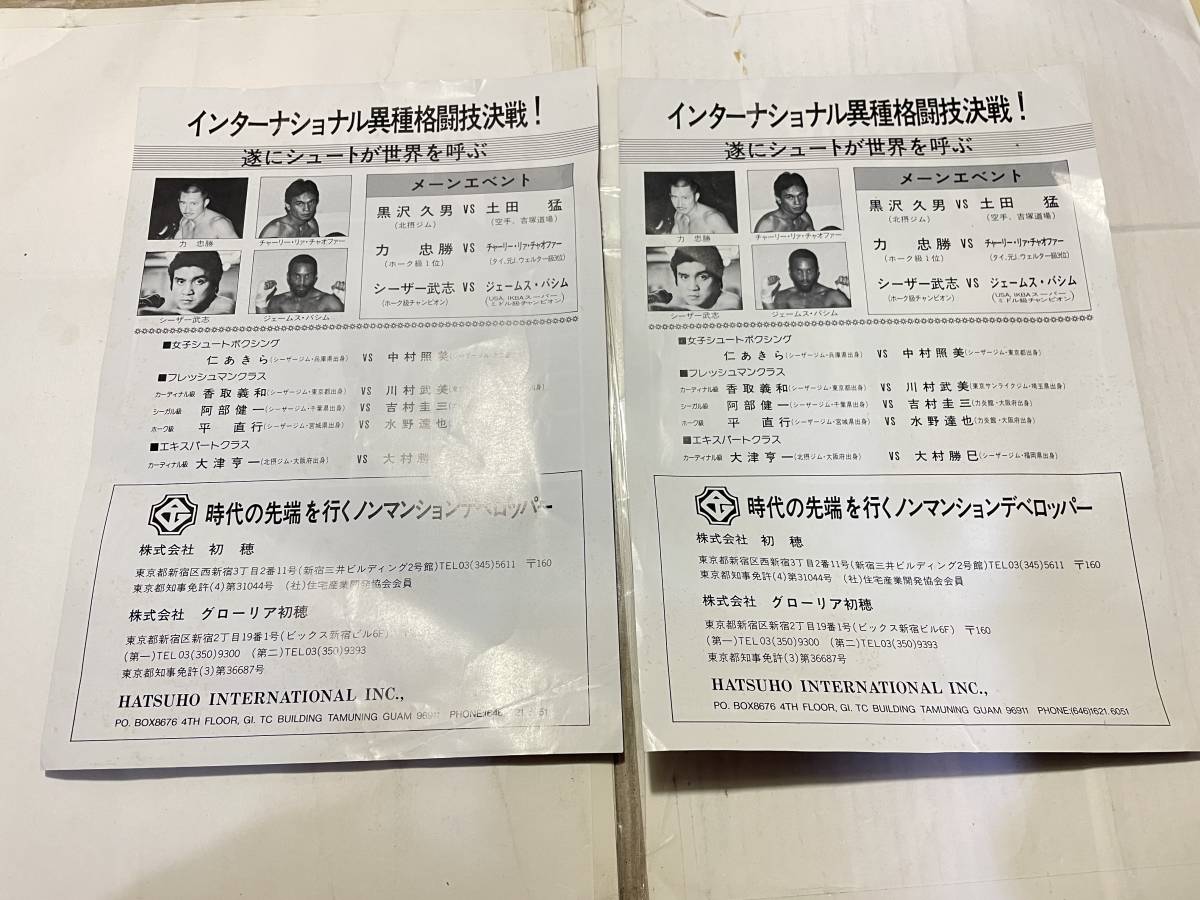 インターナショナル異種格闘技決戦!
遂にシュートが世界を呼ぶ
力 忠勝
チャーリー・リァ・チャオファー
シーザー武志
ジェームス・バシム
メーンエベント
黒沢久男 VS 土田 猛
(北摂ジム) (空手、吉塚道場)
力 忠勝 VS チャーリー・リァ・チャオファー
(ホーク級1位) (タイ、元J.ウェルター級3位)
シーザー武志 VS ジェームス・バシム
(ホーク級チャンピオン) (USA, IKBAスーパーミドル級チャンピオン)
■女子シュートボクシング
仁あきら(シーザージム・兵庫県出身) VS 中村照美
■フレッシュマンクラス
カーディナル級 香取義和(シーザージム・東京都出身) VS 川村武美
シーガル級 阿部健一(シーザージム・千葉県出身) VS 吉村圭三
ホーク級 平 直行(シーザージム・宮城県出身) VS 水野達也
■エキスパートクラス
カーディナル級 大津亨一(北摂ジム・大阪府出身) VS 大村勝
時代の先端を行くノンマンションデベロッパー
株式会社 初穂
東京都新宿区西新宿3丁目2番11号(新宿三井ビルディング2号館)TEL03(345)5611 〒160
東京都知事免許(4)第31044号 (社)住宅産業開発協会会員
株式会社 グローリア初穂
東京都新宿区新宿2丁目19番1号(ビックス新宿ビル6F)
(第一)TEL03(350)9300 (第二)TEL03(350)9393
東京都知事免許(3)第36687号
HATSUHO INTERNATIONAL INC.,
PO. BOX8676 4TH FLOOR, GI. TC BUILDING TAMUNING GUAM 96911 PHONE:(646)
インターナショナル異種格闘技決戦!
遂にシュートが世界を呼ぶ
力 忠勝
チャーリー・リァ・チャオファー
シーザー武志
ジェームス・バシム
メーンエベント
黒沢久男 VS 土田 猛
(北摂ジム) (空手、吉塚道場)
力 忠勝 VS チャーリー・リァ・チャオファー
(ホーク級1位) (タイ、元J.ウェルター級3位)
シーザー武志 VS ジェームス・バシム
(ホーク級チャンピオン) (USA, IKBAスーパーミドル級チャンピオン)
■女子シュートボクシング
仁あきら(シーザージム・兵庫県出身) VS 中村照美(シーザージム・東京都出身)
■フレッシュマンクラス
カーディナル級 香取義和(シーザージム・東京都出身) VS 川村武美(東京サンライクジム・埼玉県出身)
シーガル級 阿部健一(シーザージム・千葉県出身) VS 吉村圭三(力炎館・大阪府出身)
ホーク級 平 直行(シーザージム・宮城県出身) VS 水野達也(力炎館・大阪府出身)
■エキスパートクラス
カーディナル級 大津亨一(北摂ジム・大阪府出身) VS 大村勝巳(シーザージム・福岡県出身)
時代の先端を行くノンマンションデベロッパー
株式会社 初穂
東京都新宿区西新宿3丁目2番11号(新宿三井ビルディング2号館)TEL03(345)5611 〒160
東京都知事免許(4)第31044号 (社)住宅産業開発協会会員
株式会社 グローリア初穂
東京都新宿区新宿2丁目19番1号(ビックス新宿ビル6F) 〒160
(第一)TEL03(350)9300 (第二)TEL03(350)9393
東京都知事免許(3)第36687号
HATSUHO INTERNATIONAL INC.,
PO. BOX8676 4TH FLOOR, GI. TC BUILDING TAMUNING GUAM 96911 PHONE:(646)1621.6051